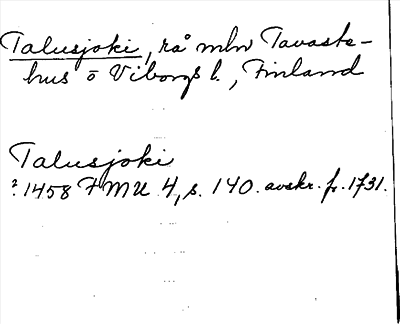 Talusjoki, rå mlm Tavaste-
hus o Viborgs l., Finland
Talusjoki
? 1458 FMU 4, s. 140. avskr. fr. 1731.